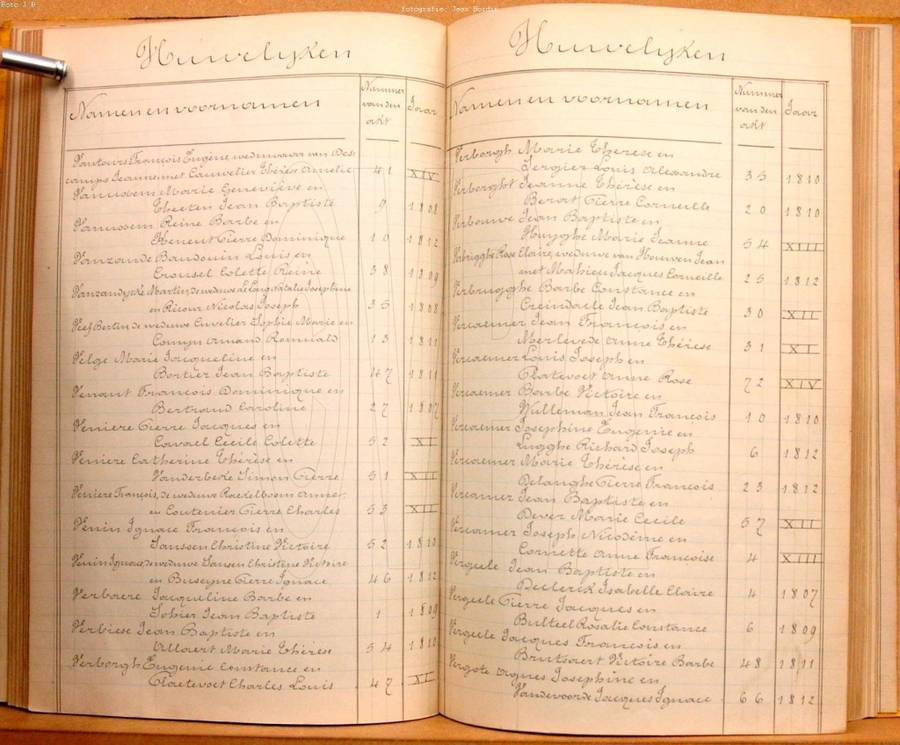 Foto J B
fotografie: Jean Bordin
Huwelyken
Namen en voornamen
Nummer van den akt
Jaar
Vantours François Eugène weduwnaar van Des-
camps Jeanne met Cauwelier Thérès Amelie 41 XIV
Marie Geneviève en
Theeten Jean Baptiste 9 1808
Vanwosem Reine Barbe en
Pierre Dominique 10 1812
Vanzande Baudouin Louis en
Crousel Colette Reine 38 1809
Martin de weduwe Josephine
en Ricour Nicolas Joseph 35 1808
Veef Bertin de weduwe Cuvelier Sophie Marie en
Comyn Amand Remuald 13 1811
Velge Marie Jacqueline en
Bortier Jean Baptiste 47 1811
Venant François Dominique en
Bertrand Caroline 27 1807
Veniere Pierre Jacques en
Cavael Cecile Colette 52 XI
Veniere Catherine Thérèse en
Vanderbeke Simon Pierre 51 XII
Veniere François, de weduwe Roedelboom
en Coutenier Pierre Charles 53 XII
Venin Ignace François en
Janssen Christine Victoire 52 1810
Venin Ignace, de weduwe Jansen Christine Victoire
en Buseyne Pierre Ignace 46 1812
Verbaere Jacqueline Barbe en
Sohier Jean Baptiste 1 1809
Verbiese Jean Baptiste en
Allaert Marie Thérèse 54 1810
Verborgh Eugenie Constance en
Claetevoet Charles Louis 47 XI
Huwelyken
Namen en voornamen
Nummer van den akt
Jaar
Verborgh Marie Therese en
Sergier Louis Alexandre 35 1810
Verborght Jeanne Thérèse en
Berat Pierre Corneille 20 1810
Verbouwe Jean Baptiste en
Huyghe Marie Jeanne 54 XIII
Rose Claire, weduwe van Houwen Jean
met Mahieu Jacques Corneille 25 1812
Verbrugghe Barbe Constance en
Creindaele Jean Baptiste 30 XII
Vercaemer Jean François en
Merlevede Anne Thérèse 31 XI
Vercaemer Louis Joseph en
Claetevoet Anne Rose 72 XIV
Vercaemer Barbe Victoire en
Willeman Jean François 10 1810
Vercaemer Josephine Eugenie en
Lugghe Richard Joseph 6 1812
Vercaemer Marie Therese en
Delanghe Pierre François 23 1812
Vercamer Jean Baptiste en
Dever Marie Cecile 57 XII
Vercamer Joseph Nicodème en
Cornette Anne Françoise 4 XIII
Vergeele Jean Baptiste en
Declerck Isabelle Claire 4 1807
Vergeele Pierre Jacques en
Bulteel Rosalie Constance 6 1809
Vergeele Jacques François en
Brutsaert Victoire Barbe 48 1811
Vergote Agnes Josephine en
Vandevoorde Jacques Ignace 66 1812